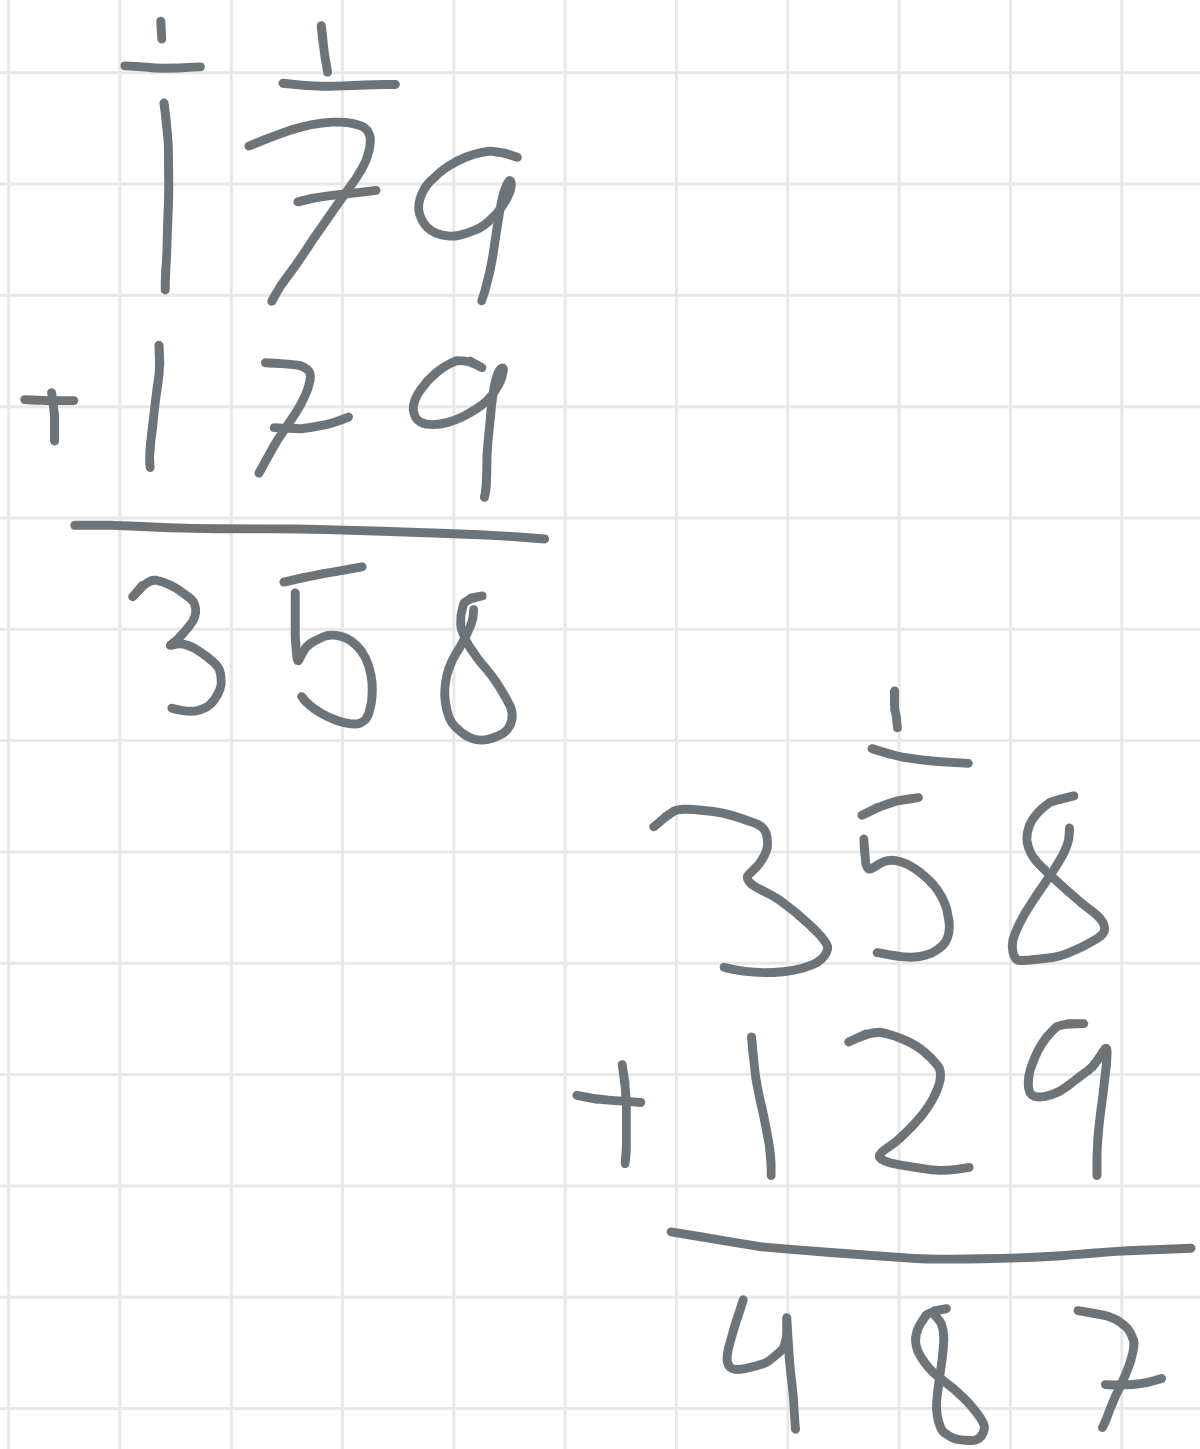 1 1
179
+179
358
1
358
+129
487